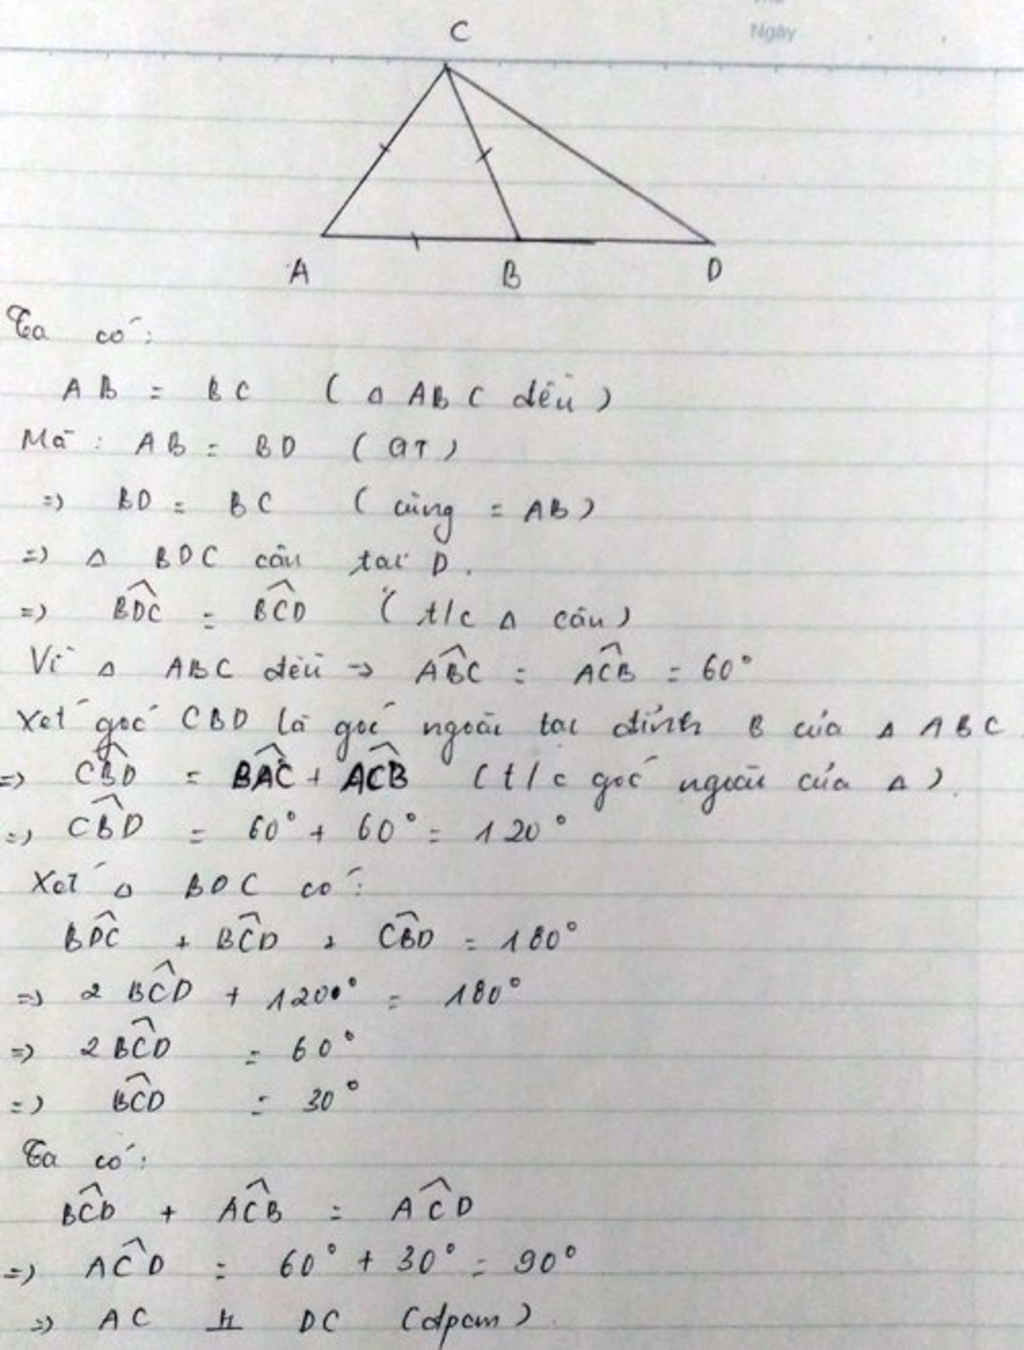 Ngày
C
A B D
Ta có:
AB = BC ( Δ ABC đều )
Mà : AB = BD ( GT )
=> BD = BC ( cùng = AB )
=> Δ BDC cân tại D.
=> \widehat{BDC} = \widehat{BCD} ( t/c Δ cân )
Vì Δ ABC đều -> \widehat{ABC} = \widehat{ACB} = 60°
Xét góc CBD là góc ngoài tại đỉnh B của Δ ABC
=> \widehat{CBD} = \widehat{BAC} + \widehat{ACB} ( t/c góc ngoài của Δ ).
=> \widehat{CBD} = 60° + 60° = 120°
Xét Δ BDC có:
\widehat{BDC} + \widehat{BCD} + \widehat{CBD} = 180°
=> 2 \widehat{BCD} + 120° = 180°
=> 2 \widehat{BCD} = 60°
=> \widehat{BCD} = 30°
Ta có:
\widehat{BCD} + \widehat{ACB} = \widehat{ACD}
=> \widehat{ACD} = 60° + 30° = 90°
=> AC ⊥ DC (đpcm).